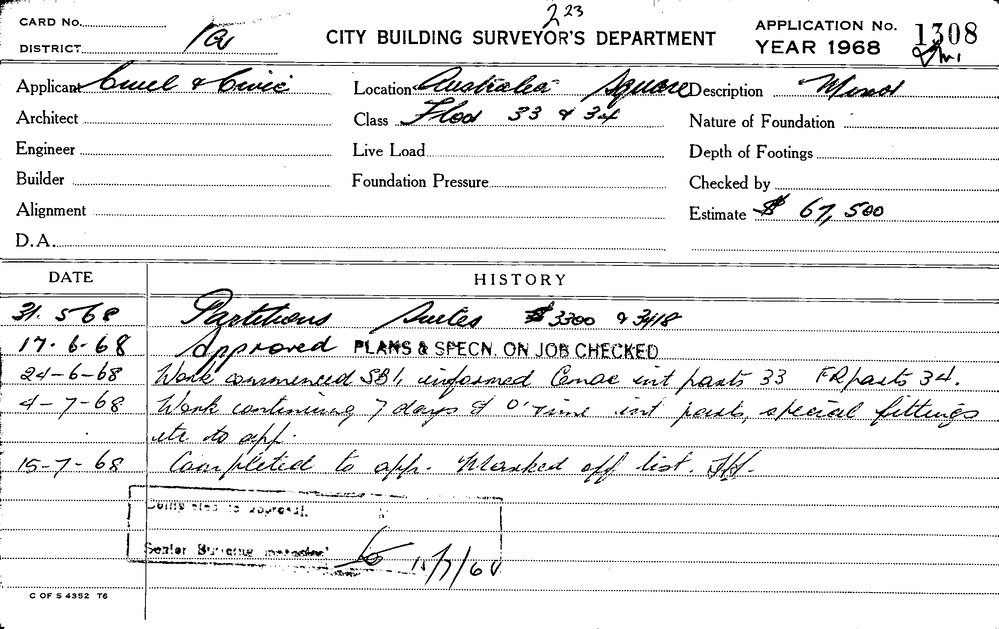 223
CARD No.
DISTRICT 1a
CITY BUILDING SURVEYOR'S DEPARTMENT
APPLICATION No. 1308
YEAR 1968
Applicant Civil & Civic
Location Australia Square
Description Minor
Architect
Class Floor 33 & 34
Nature of Foundation
Engineer
Live Load
Depth of Footings
Builder
Foundation Pressure
Checked by
Alignment
Estimate $ 67,500
D.A.
DATE HISTORY
31.5.68 Partitions Suites 3300 & 3418
17.6.68 Approved PLANS & SPECN. ON JOB CHECKED
24-6-68 Work commenced SB1, informed int parts 33 FR parts 34.
4-7-68 Work continuing 7 days & O'Time int parts, special fittings
etc to app.
15-7-68 Completed to app. Marked off list.
Completed to approval
Senior Building Inspector
15/7/68
C OF S 4352 T6